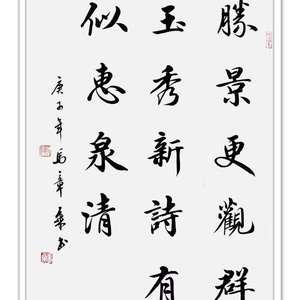 勝景更觀群
玉秀新詩有
似惠泉清
庚子年馬章书